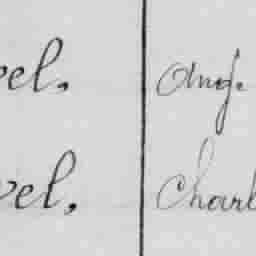 vel. Aug.
vel, Charl